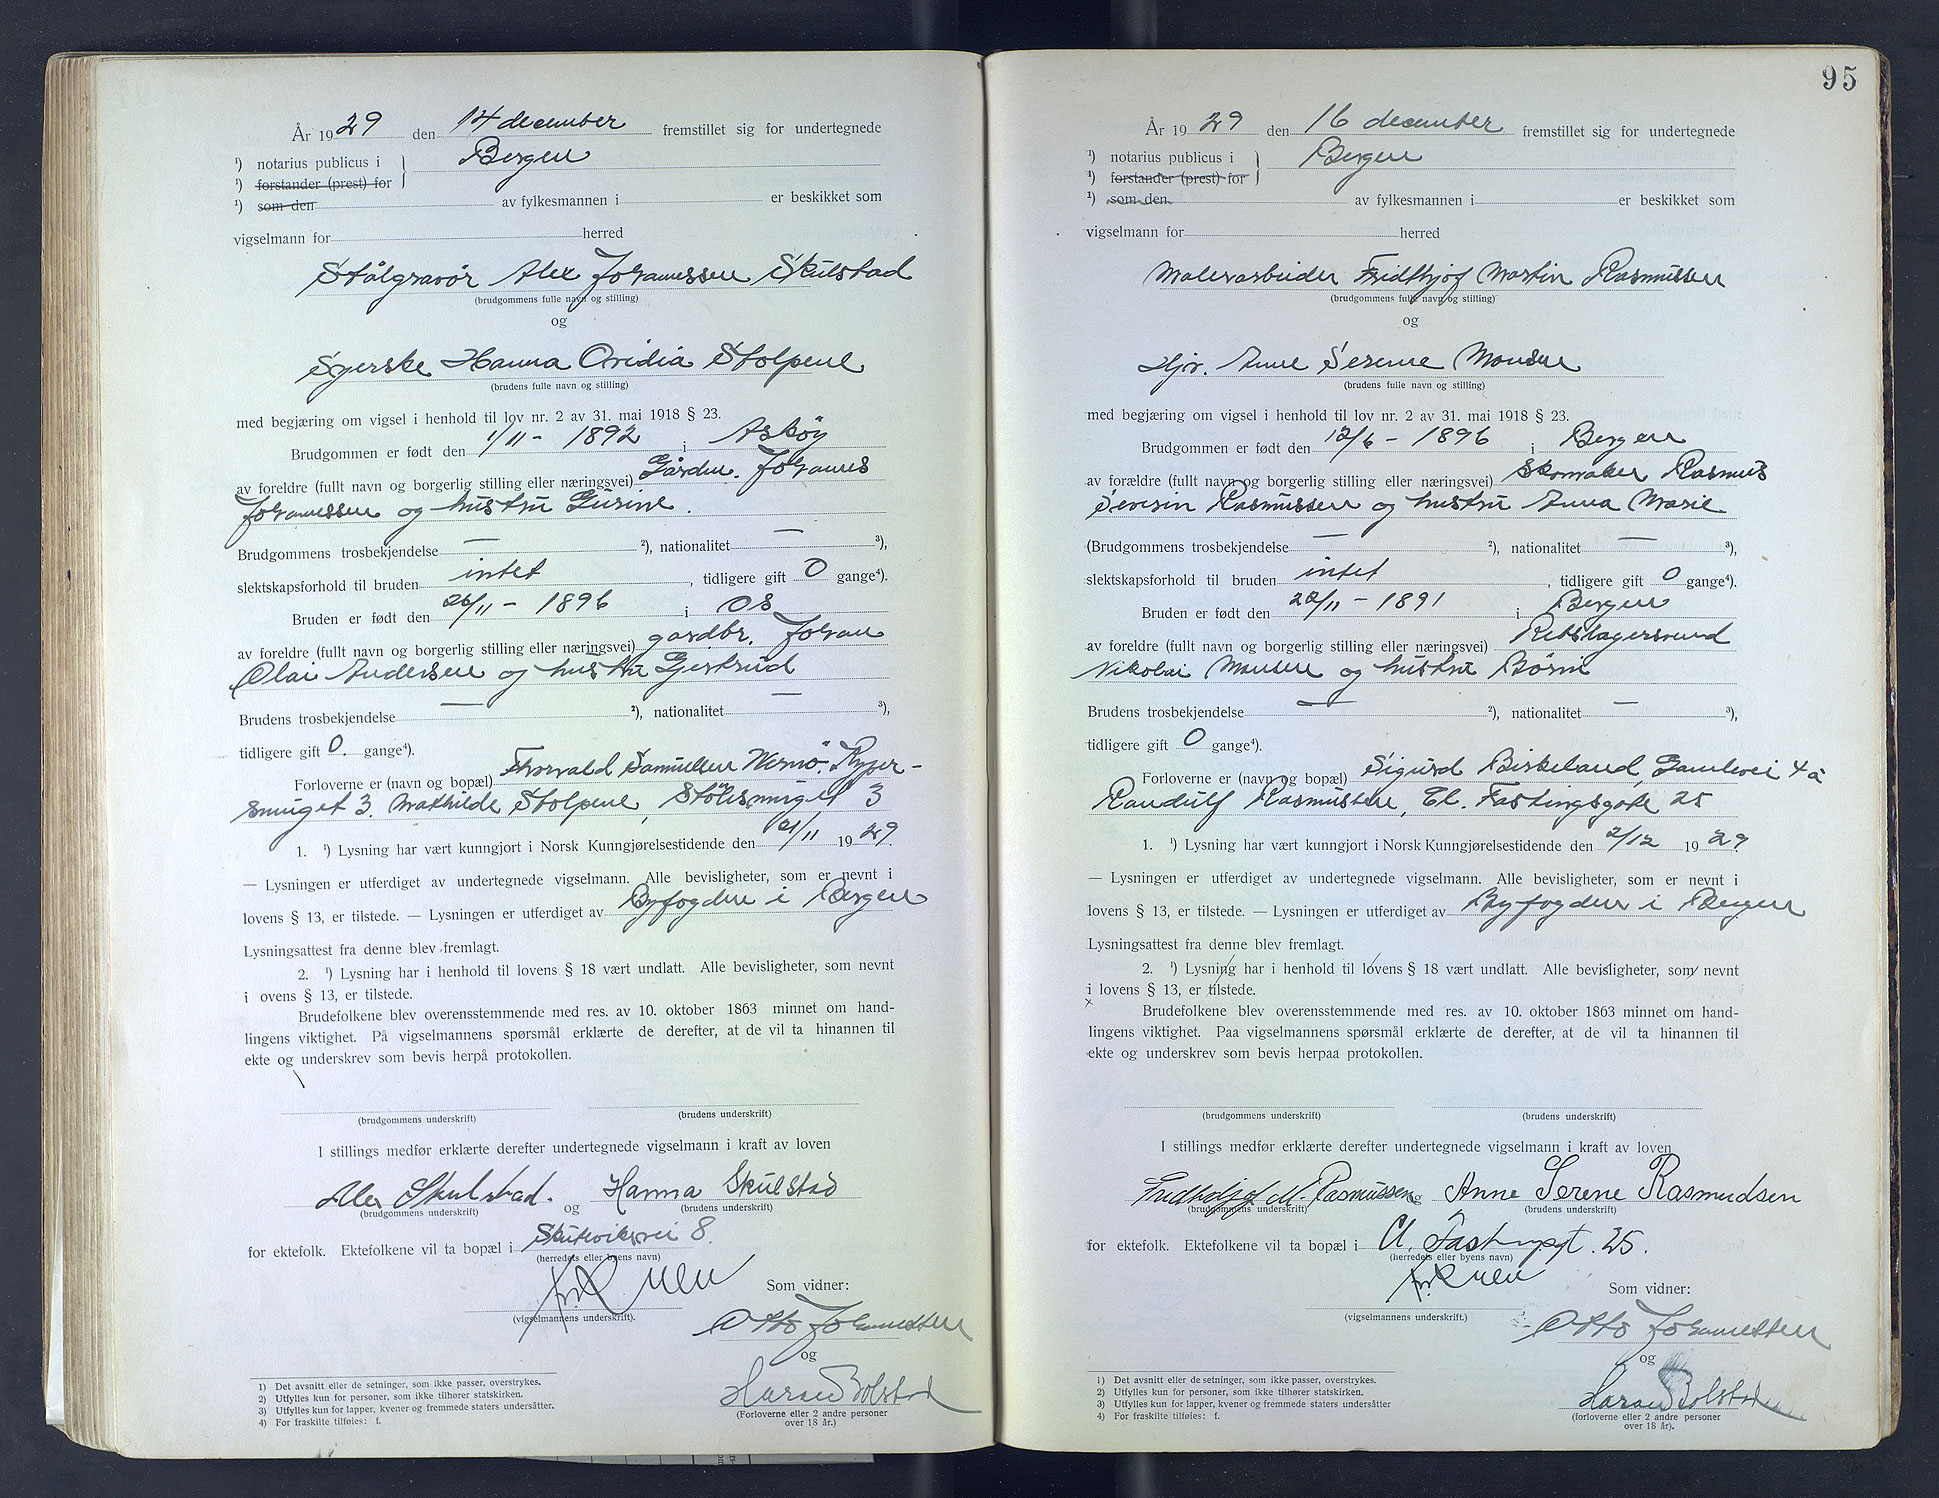 År 1929 den 14 december fremstillet sig for undertegnede
¹) notarius publicus i } Bergen
¹) forstander (prest) for
¹) som den av fylkesmannen i er beskikket som
vigselmann for herred
Stålgravör Alex Johannessen Skulstad
(brudgommens fulle navn og stilling)
og
Syerske Hanna Ovidia Stolpene
(brudens fulle navn og stilling)
med begjæring om vigsel i henhold til lov nr. 2 av 31. mai 1918 § 23.
Brudgommen er født den 1/11 - 1892 i Asköy
av foreldre (fullt navn og borgerlig stilling eller næringsvei) Gårdbr. Johannes
Johannessen og hustru Gurine.
Brudgommens trosbekjendelse — ²), nationalitet — ³),
slektskapsforhold til bruden intet, tidligere gift 0 gange⁴).
Bruden er født den 26/11 - 1896 i Os
av foreldre (fullt navn og borgerlig stilling eller næringsvei) gardbr. Johan
Olai Andersen og hustru Gjertrud
Brudens trosbekjendelse — ²), nationalitet — ³),
tidligere gift 0. gange⁴).
Forloverne er (navn og bopæl) Thorvald Samuelsen Ryper-
smuget 3. Mathilde Stolpene, Stölesmuget 3
1. ¹) Lysning har vært kunngjort i Norsk Kunngjørelsestidende den 21/11 1929.
— Lysningen er utferdiget av undertegnede vigselmann. Alle bevisligheter, som er nevnt i
lovens § 13, er tilstede. — Lysningen er utferdiget av Byfogden i Bergen
Lysningsattest fra denne blev fremlagt.
2. ¹) Lysning har i henhold til lovens § 18 vært undlatt. Alle bevisligheter, som nevnt
i ovens § 13, er tilstede.
Brudefolkene blev overensstemmende med res. av 10. oktober 1863 minnet om hand-
lingens viktighet. På vigselmannens spørsmål erklærte de derefter, at de vil ta hinannen til
ekte og underskrev som bevis herpå protokollen.
(brudgommens underskrift) (brudens underskrift)
I stillings medfør erklærte derefter undertegnede vigselmann i kraft av loven
Alex Skulstad. og Hanna Skulstad
(brudgommens underskrift) (brudens underskrift)
for ektefolk. Ektefolkene vil ta bopæl i Skuteviksvei 8.
(herredets eller byens navn)
Som vidner:
(vigselmannens underskrift).
Otto Johannessen
og
Haran Bolstad
(Forloverne eller 2 andre personer
over 18 år.)
1) Det avsnitt eller de setninger, som ikke passer, overstrykes.
2) Utfylles kun for personer, som ikke tilhører statskirken.
3) Utfylles kun for lapper, kvener og fremmede staters undersåtter.
4) For fraskilte tilføies: f.
95
År 1929 den 16 december fremstillet sig for undertegnede
¹) notarius publicus i } Bergen
¹) forstander (prest) for
¹) som den av fylkesmannen i er beskikket som
vigselmann for herred
Malerarbeider Fridthjof Martin Rasmussen
(brudgommens fulle navn og stilling)
og
Hjv. Anne Serene Monsen
(brudens fulle navn og stilling)
med begjæring om vigsel i henhold til lov nr. 2 av 31. mai 1918 § 23.
Brudgommen er født den 12/6 - 1896 i Bergen
av forældre (fullt navn og borgerlig stilling eller næringsvei) Skomaker Rasmus
Severin Rasmussen og hustru Anna Marie
(Brudgommens trosbekjendelse — ²), nationalitet — ³),
slektskapsforhold til bruden intet, tidligere gift 0 gange⁴).
Bruden er født den 22/11 - 1891 i Bergen
av foreldre (fullt navn og borgerlig stilling eller næringsvei) Rebslagersvend
Nikolai Monsen og hustru Börni
Brudens trosbekjendelse — ²), nationalitet — ³),
tidligere gift 0 gange⁴).
Forloverne er (navn og bopæl) Sigurd Birkeland, Gamlevei 4a
Randulf Rasmussen, Cl. Fastingsgate 25
1. ¹) Lysning har vært kunngjort i Norsk Kunngjørelsestidende den 2/12 1929.
— Lysningen er utferdiget av undertegnede vigselmann. Alle bevisligheter, som er nevnt i
lovens § 13, er tilstede. — Lysningen er utferdiget av Byfogden i Bergen
Lysningsattest fra denne blev fremlagt.
2. ¹) Lysning har i henhold til lovens § 18 vært undlatt. Alle bevisligheter, som nevnt
i lovens § 13, er tilstede.
Brudefolkene blev overensstemmende med res. av 10. oktober 1863 minnet om hand-
lingens viktighet. Paa vigselmannens spørsmål erklærte de derefter, at de vil ta hinannen til
ekte og underskrev som bevis herpaa protokollen.
(brudgommens underskrift) (brudens underskrift)
I stillings medfør erklærte derefter undertegnede vigselmann i kraft av loven
Fridtholjof M. Rasmussen og Anne Serene Rasmudsen
(brudgommens underskrift) (brudens underskrift)
for ektefolk. Ektefolkene vil ta bopæl i Cl. Fastingsgt. 25.
(herredets eller byens navn)
Som vidner:
(vigselmannens underskrift.)
Otto Johannessen
og
Haran Bolstad
(forloverne eller 2 andre personer
over 18 år).
1) Det avsnitt eller de setninger, som ikke passer, overstrykes.
2) Utfylles kun for personer, som ikke tilhører statskirken.
3) Utfylles kun for lapper, kvener og fremmede staters undersåtter
4) For fraskilte tilføies: f.